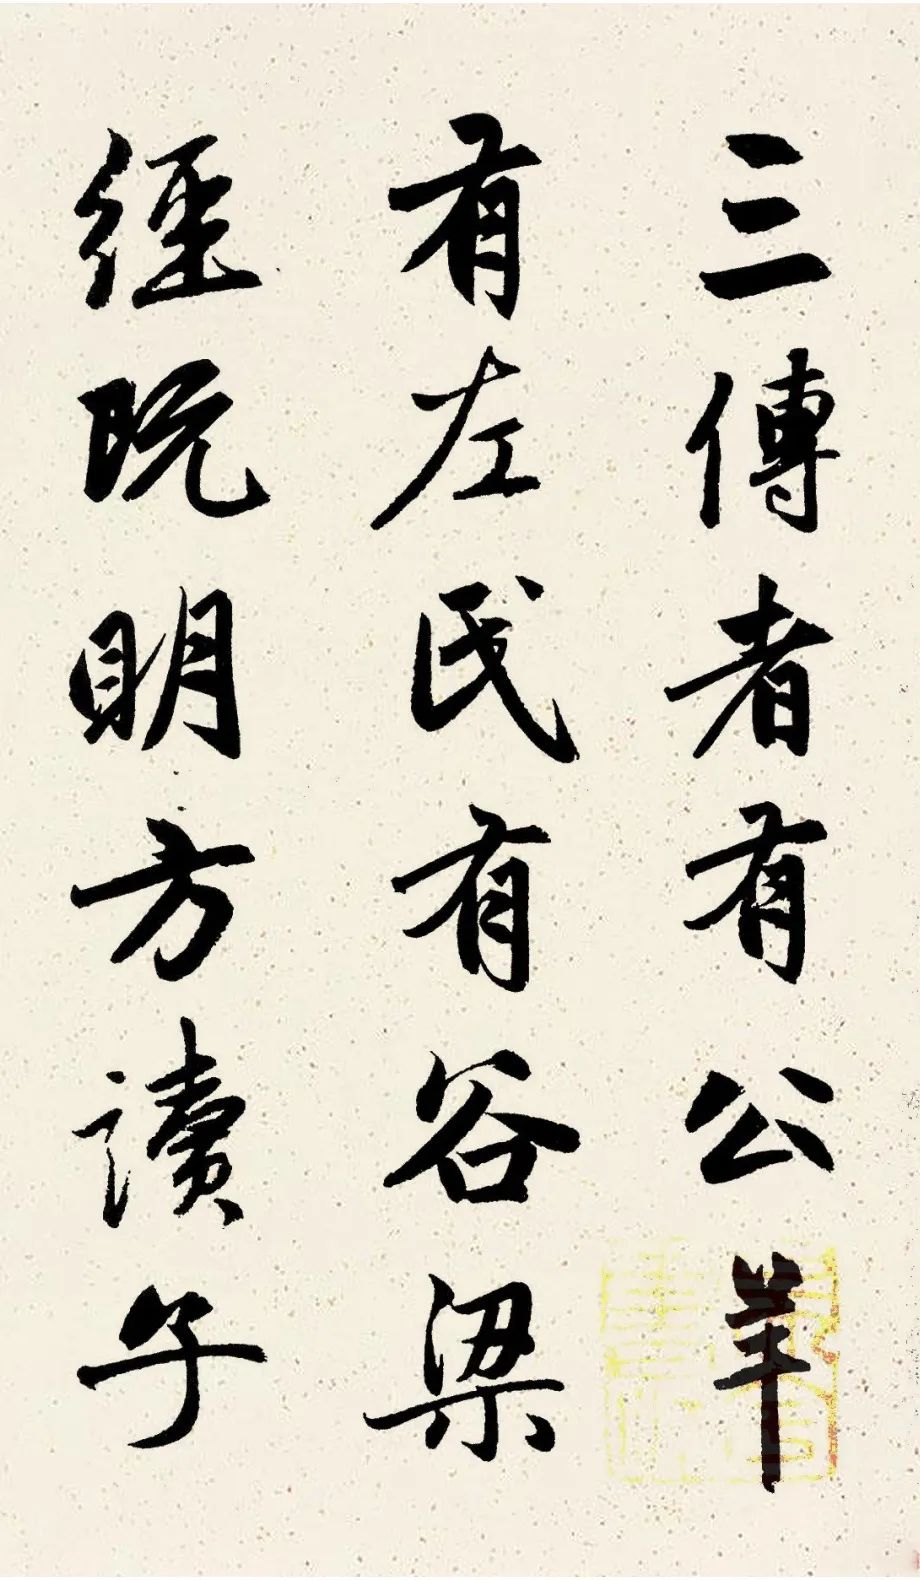 三傳者有公羊
有左氏有谷梁
經既明方讀子